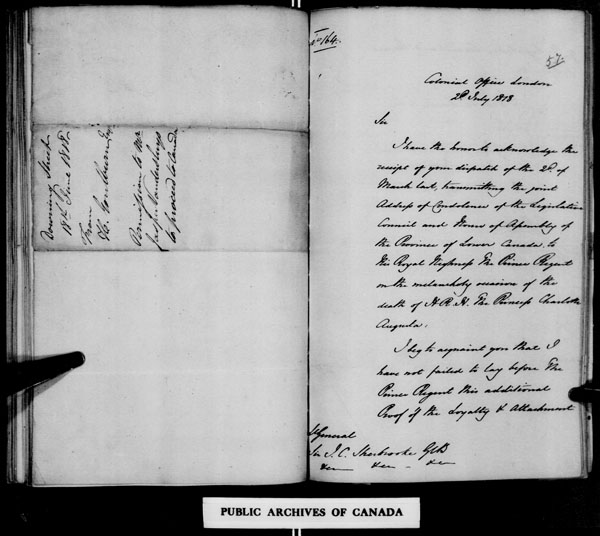 Downing Street
18th June 1818
From
H. Goulburn Esq
Permission to Mr
to proceed to Canada
No 164.
57.
Colonial Office London
2d. July 1818
Sir
I have the honor to acknowledge the
receipt of your dispatch of the 2d. of
March last, transmitting the joint
Address of Condolence of the Legislative
Council and House of Assembly of
the Province of Lower Canada, to
His Royal Highness The Prince Regent
on the melancholy occasion of the
death of H.R.H. The Princess Charlotte
Augusta.
I beg to acquaint you that I
have not failed to lay before The
Prince Regent this additional
Proof of the Loyalty & Attachment
Lt General
Sir J. C. Sherbrooke GCB
&c &c &c
PUBLIC ARCHIVES OF CANADA